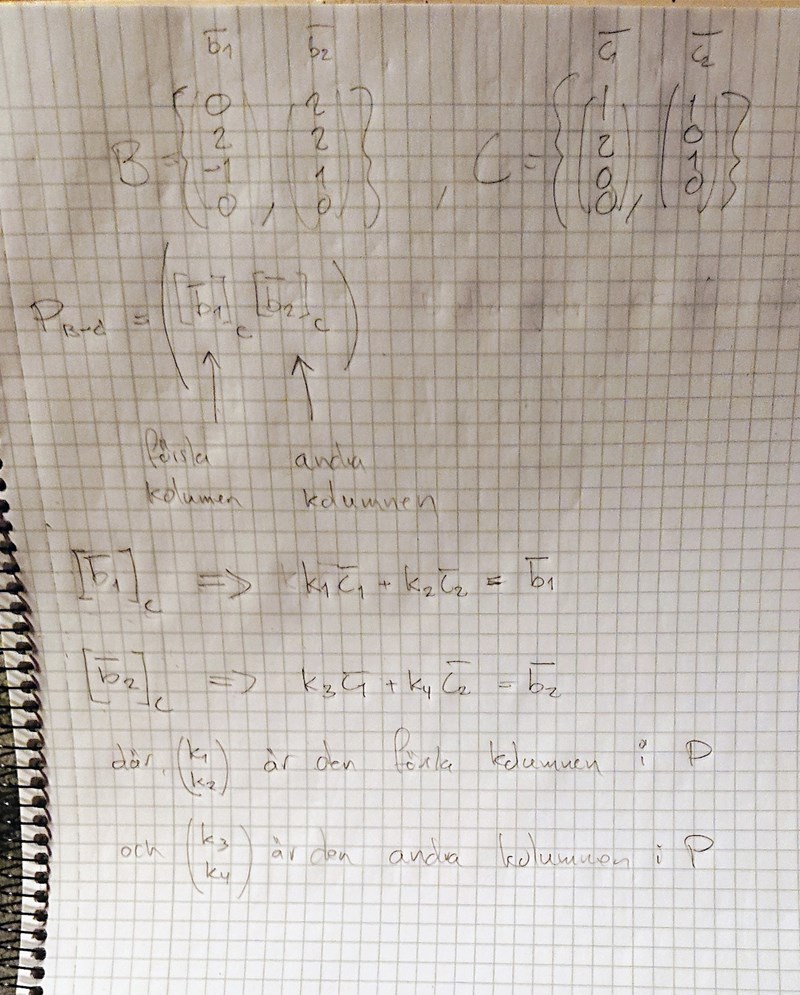 b̄1 b̄2 c̄1 c̄2
B = {(0 2 -1 0), (2 2 1 0)}, C = {(1 2 0 0), (1 0 1 0)}
P B→C = ([b̄1]c [b̄2]c)
första andra
kolumen kolumnen
[b̄1]c => k1c̄1 + k2c̄2 = b̄1
[b̄2]c => k3c̄1 + k4c̄2 = b̄2
där (k1 k2) är den första kolumnen i P
och (k3 k4) är den andra kolumnen i P